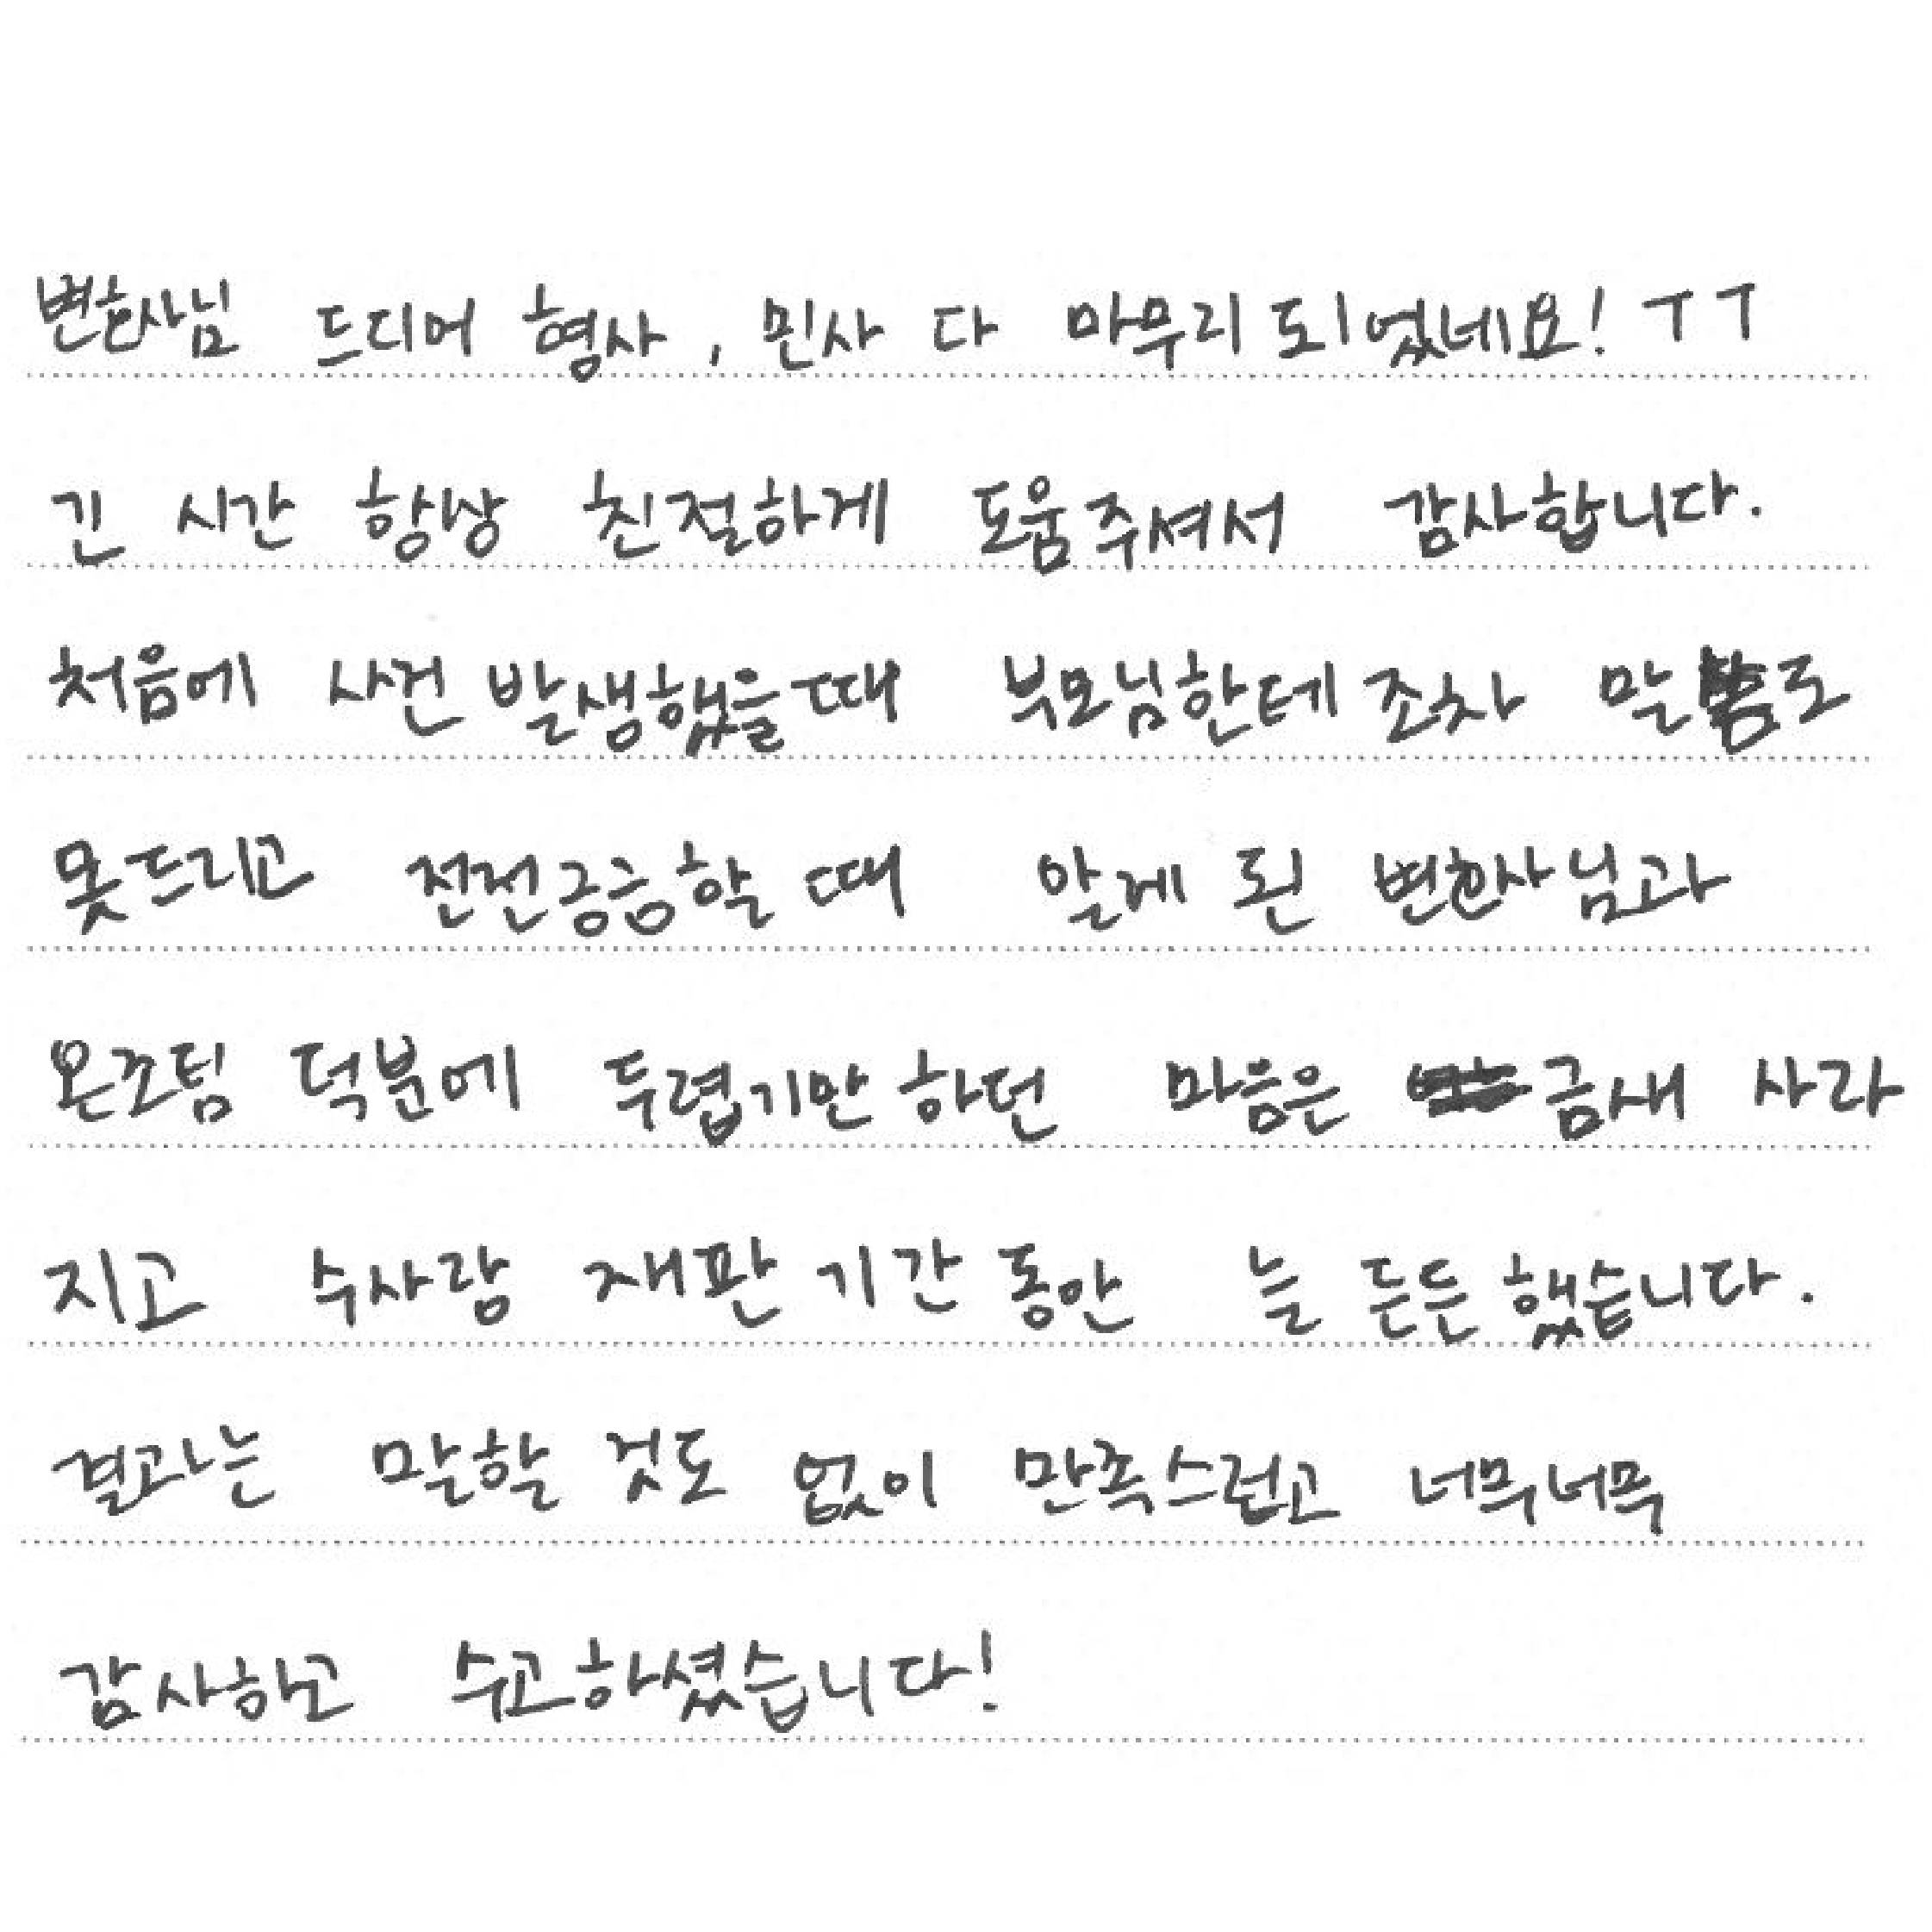 변호사님 드디어 형사, 민사 다 마무리 되었네요! ㅜㅜ
긴 시간 항상 친절하게 도움주셔서 감사합니다.
처음에 사건 발생했을때 부모님한테 조차 말씀도
못드리고 전전긍긍할 때 알게 된 변호사님과
온조팀 덕분에 두렵기만 하던 마음은 금새 사라
지고 수사랑 재판 기간 동안 늘 든든했습니다.
결과는 말할 것도 없이 만족스럽고 너무너무
감사하고 수고하셨습니다!